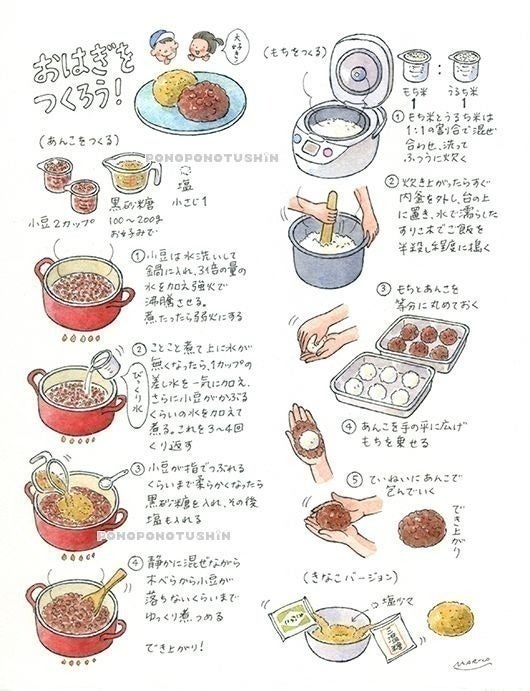 おはぎを
つくろう！
大好き♡
PONOPONOTUSHiN
(あんこをつくる)
小豆2カップ
黒砂糖
100〜200g
お好みで
塩
小さじ1
①小豆は水洗いして
鍋に入れ、3倍の量の
水を加え強火で
沸騰させる。
煮たったら弱火にする
②ことこと煮て上に水が
無くなったら、1カップの
差し水を一気に加え、
さらに小豆がかぶる
くらいの水を加えて
煮る。これを3〜4回
くり返す
びっくり水
③小豆が指でつぶれる
くらいまで柔らかくなったら
黒砂糖を入れ、その後
塩も入れる
PONOPONOTUSHiN
④静かに混ぜながら
木べらから小豆が
落ちないくらいまで
ゆっくり煮つめる
でき上がり！
(もちをつくる)
もち米
:
うるち米
①もち米とうるち米は
1:1の割合で混ぜ
合わせ、洗って
ふつうに炊く
②炊き上がったらすぐ
内釜を外し、台の上
に置き、水で濡らした
すりこ木でご飯を
半殺し程度に搗く
③もちとあんこを
等分に丸めておく
④あんこを手の平に広げ
もちを乗せる
⑤ていねいにあんこで
包んでいく
でき上がり
(きなこバージョン)
塩少々
きなこ
MARICO